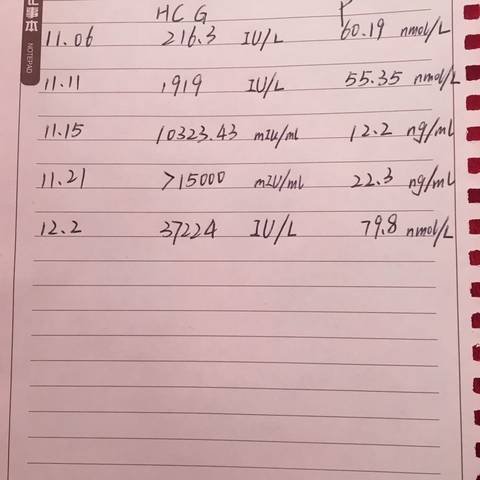 事本
NOTEPAD
HCG P
11.06 216.3 IU/L 60.19 nmol/L
11.11 1919 IU/L 55.35 nmol/L
11.15 10323.43 mIU/ml 12.2 ng/ml
11.21 >15000 mIU/ml 22.3 ng/ml
12.2 37224 IU/L 79.8 nmol/L